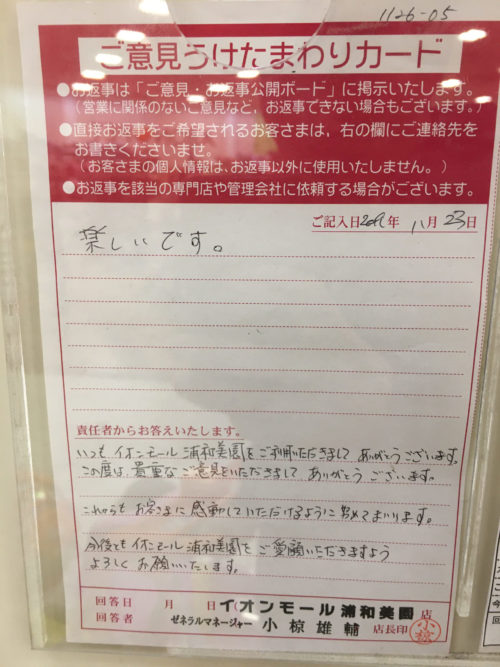 1126-05
ご意見うけたまわりカード
●お返事は「ご意見・お返事公開ボード」に掲示いたします。
(営業に関係のないご意見など、お返事できない場合もございます。)
●直接お返事をご希望されるお客さまは、右の欄にご連絡先を
お書きくださいませ。
(お客さまの個人情報は、お返事以外に使用いたしません。)
●お返事を該当の専門店や管理会社に依頼する場合がございます。
ご記入日 年 11月23日
楽しいです。
責任者からお答えいたします。
いつも イオンモール浦和美園を ご利用いただきまして ありがとうございます。
この度は、貴重な ご意見をいただきまして ありがとう ございます。
これからも お客さまに 感動していただけるように 努めてまいります。
今後とも イオンモール浦和美園を ご愛顧いただきますよう
よろしく お願いいたします。
回答日 月 日 イオンモール浦和美園 店
回答者 ゼネラルマネージャー 小椋雄輔 店長印 小椋